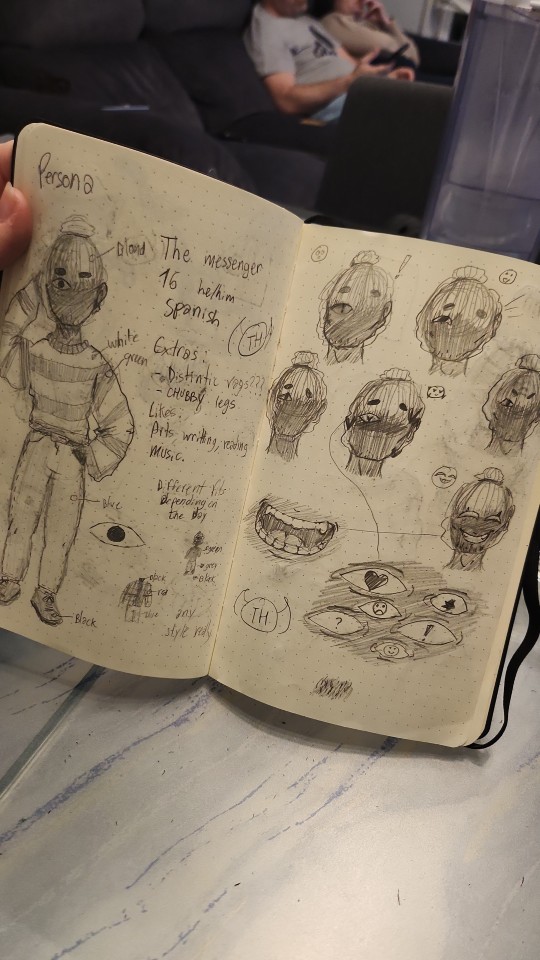 Persona
Blond
The messenger
16 he/him
Spanish
TH
white
green
Extras:
- Distintic vags???
- CHUBBY legs
Likes:
Arts, writting, reading
Music.
Different fits
Depending on
the Day
Blue
green
grey
Black
Black
red
blue
any
style really
Black
!
?
!
TH